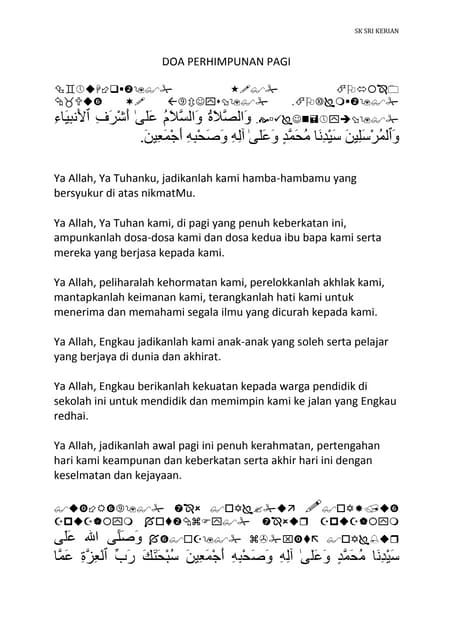 SK SRI KERIAN
DOA PERHIMPUNAN PAGI
وَالصَّلَاةُ وَالسَّلَامُ عَلَىٰ أَشْرَفِ ٱلْأَنبِيَاءِ
وَٱلْمُرْسَلِينَ سَيِّدِنَا مُحَمَّدٍ وَعَلَىٰ آلِهِ وَصَحْبِهِ أَجْمَعِينَ.
Ya Allah, Ya Tuhanku, jadikanlah kami hamba-hambamu yang
bersyukur di atas nikmatMu.
Ya Allah, Ya Tuhan kami, di pagi yang penuh keberkatan ini,
ampunkanlah dosa-dosa kami dan dosa kedua ibu bapa kami serta
mereka yang berjasa kepada kami.
Ya Allah, peliharalah kehormatan kami, perelokkanlah akhlak kami,
mantapkanlah keimanan kami, terangkanlah hati kami untuk
menerima dan memahami segala ilmu yang dicurah kepada kami.
Ya Allah, Engkau jadikanlah kami anak-anak yang soleh serta pelajar
yang berjaya di dunia dan akhirat.
Ya Allah, Engkau berikanlah kekuatan kepada warga pendidik di
sekolah ini untuk mendidik dan memimpin kami ke jalan yang Engkau
redhai.
Ya Allah, jadikanlah awal pagi ini penuh kerahmatan, pertengahan
hari kami keampunan dan keberkatan serta akhir hari ini dengan
keselmatan dan kejayaan.
وَصَلَّى الله عَلَى
سَيِّدِنَا مُحَمَّدٍ وَعَلَىٰ آلِهِ وَصَحْبِهِ أَجْمَعِينَ سُبْحَٰنَكَ رَبِّ ٱلْعِزَّةِ عَمَّا